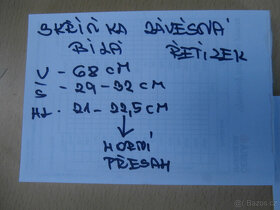 SKŘÍŇKA ZÁVĚSNÁ
BÍLÁ ŘETÍZEK
V - 68 CM
Š - 29-32 CM
HL. 21-22,5 CM
HORNÍ
PŘESAH